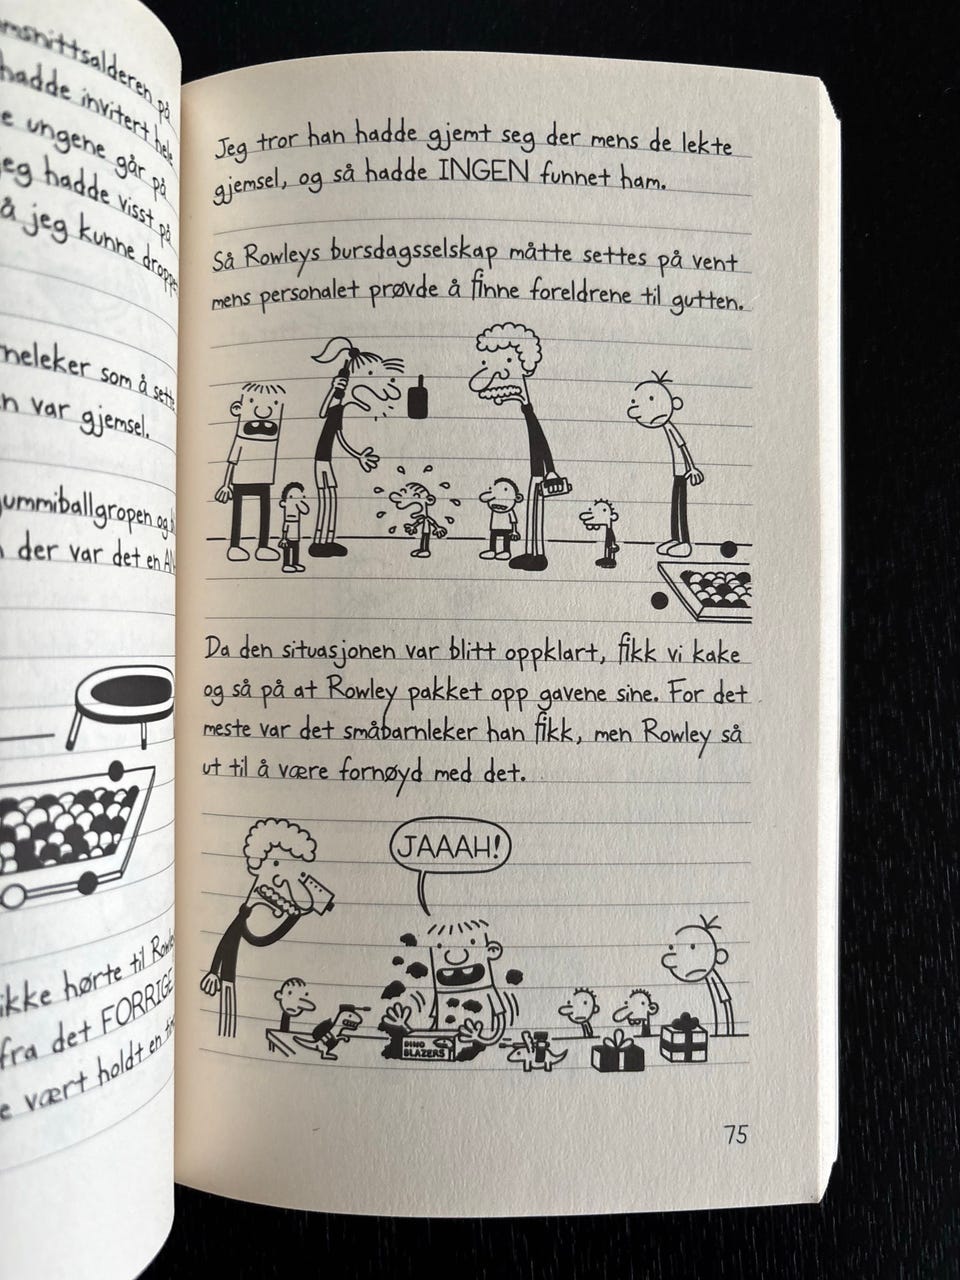 msnittsalderen på
hadde invitert hele
ungene går på
jeg hadde visst på
jeg kunne droppe
neleker som å sette
n var gjemsel.
gummiballgropen og
der var det en
ikke hørte til Rowle
fra det FORRIGE
vært holdt en
Jeg tror han hadde gjemt seg der mens de lekte
gjemsel, og så hadde INGEN funnet ham.
Så Rowleys bursdagsselskap måtte settes på vent
mens personalet prøvde å finne foreldrene til gutten.
Da den situasjonen var blitt oppklart, fikk vi kake
og så på at Rowley pakket opp gavene sine. For det
meste var det småbarnleker han fikk, men Rowley så
ut til å være fornøyd med det.
JAAAH!
DINO
BLAZERS
75